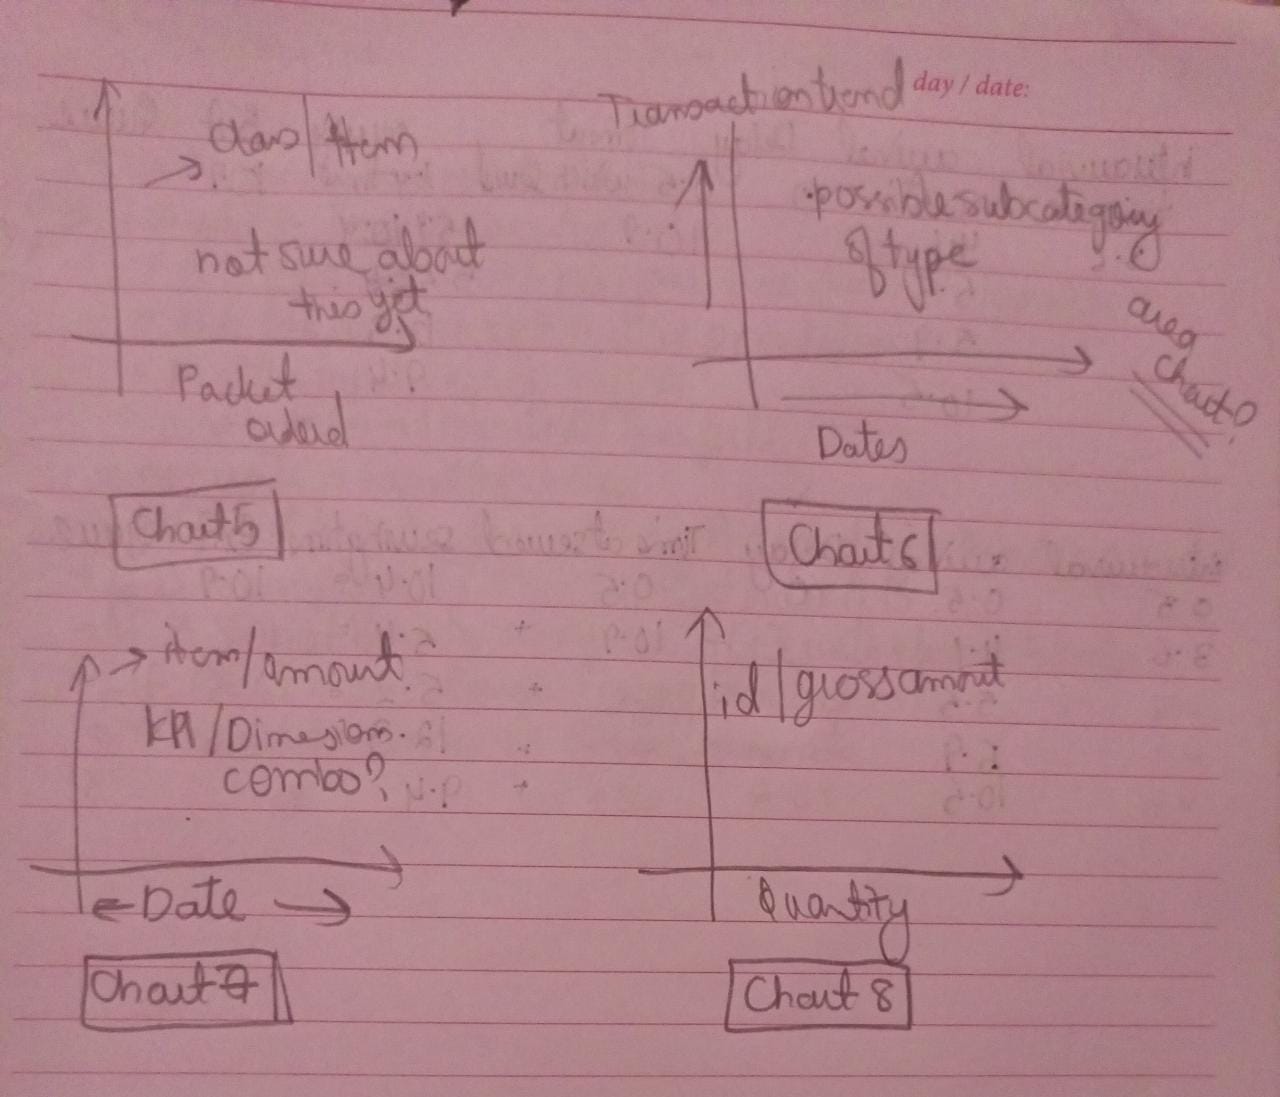 day / date:
Class/Item
not sure about
this yet
Packet
orderd
Chart 5
Transaction trend
possible subcategory
of type
area
chart?
Dates
Chart 6
item/amount
KPI/Dimesion
combo?
Date
Chart 7
id/grossamout
Quantity
Chart 8